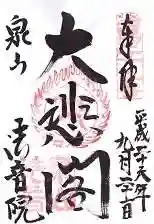 奉拝
平成二十六年
九月二十二日
大悲閣
泉山
法音院